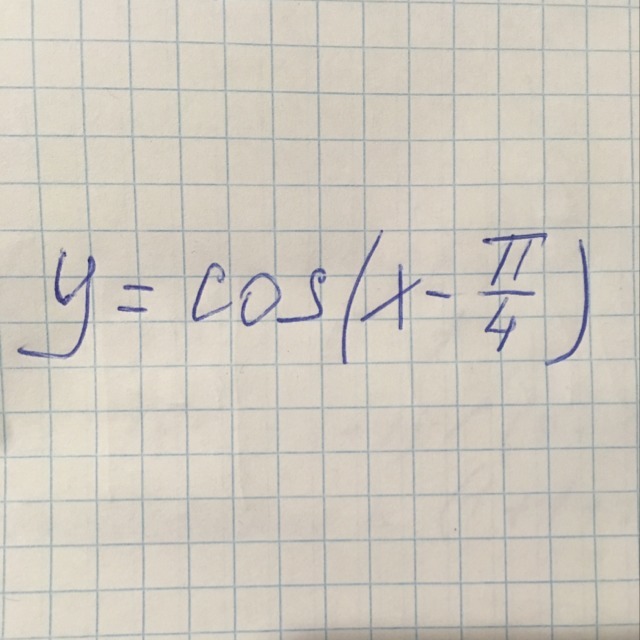 y = cos(x - π/4)